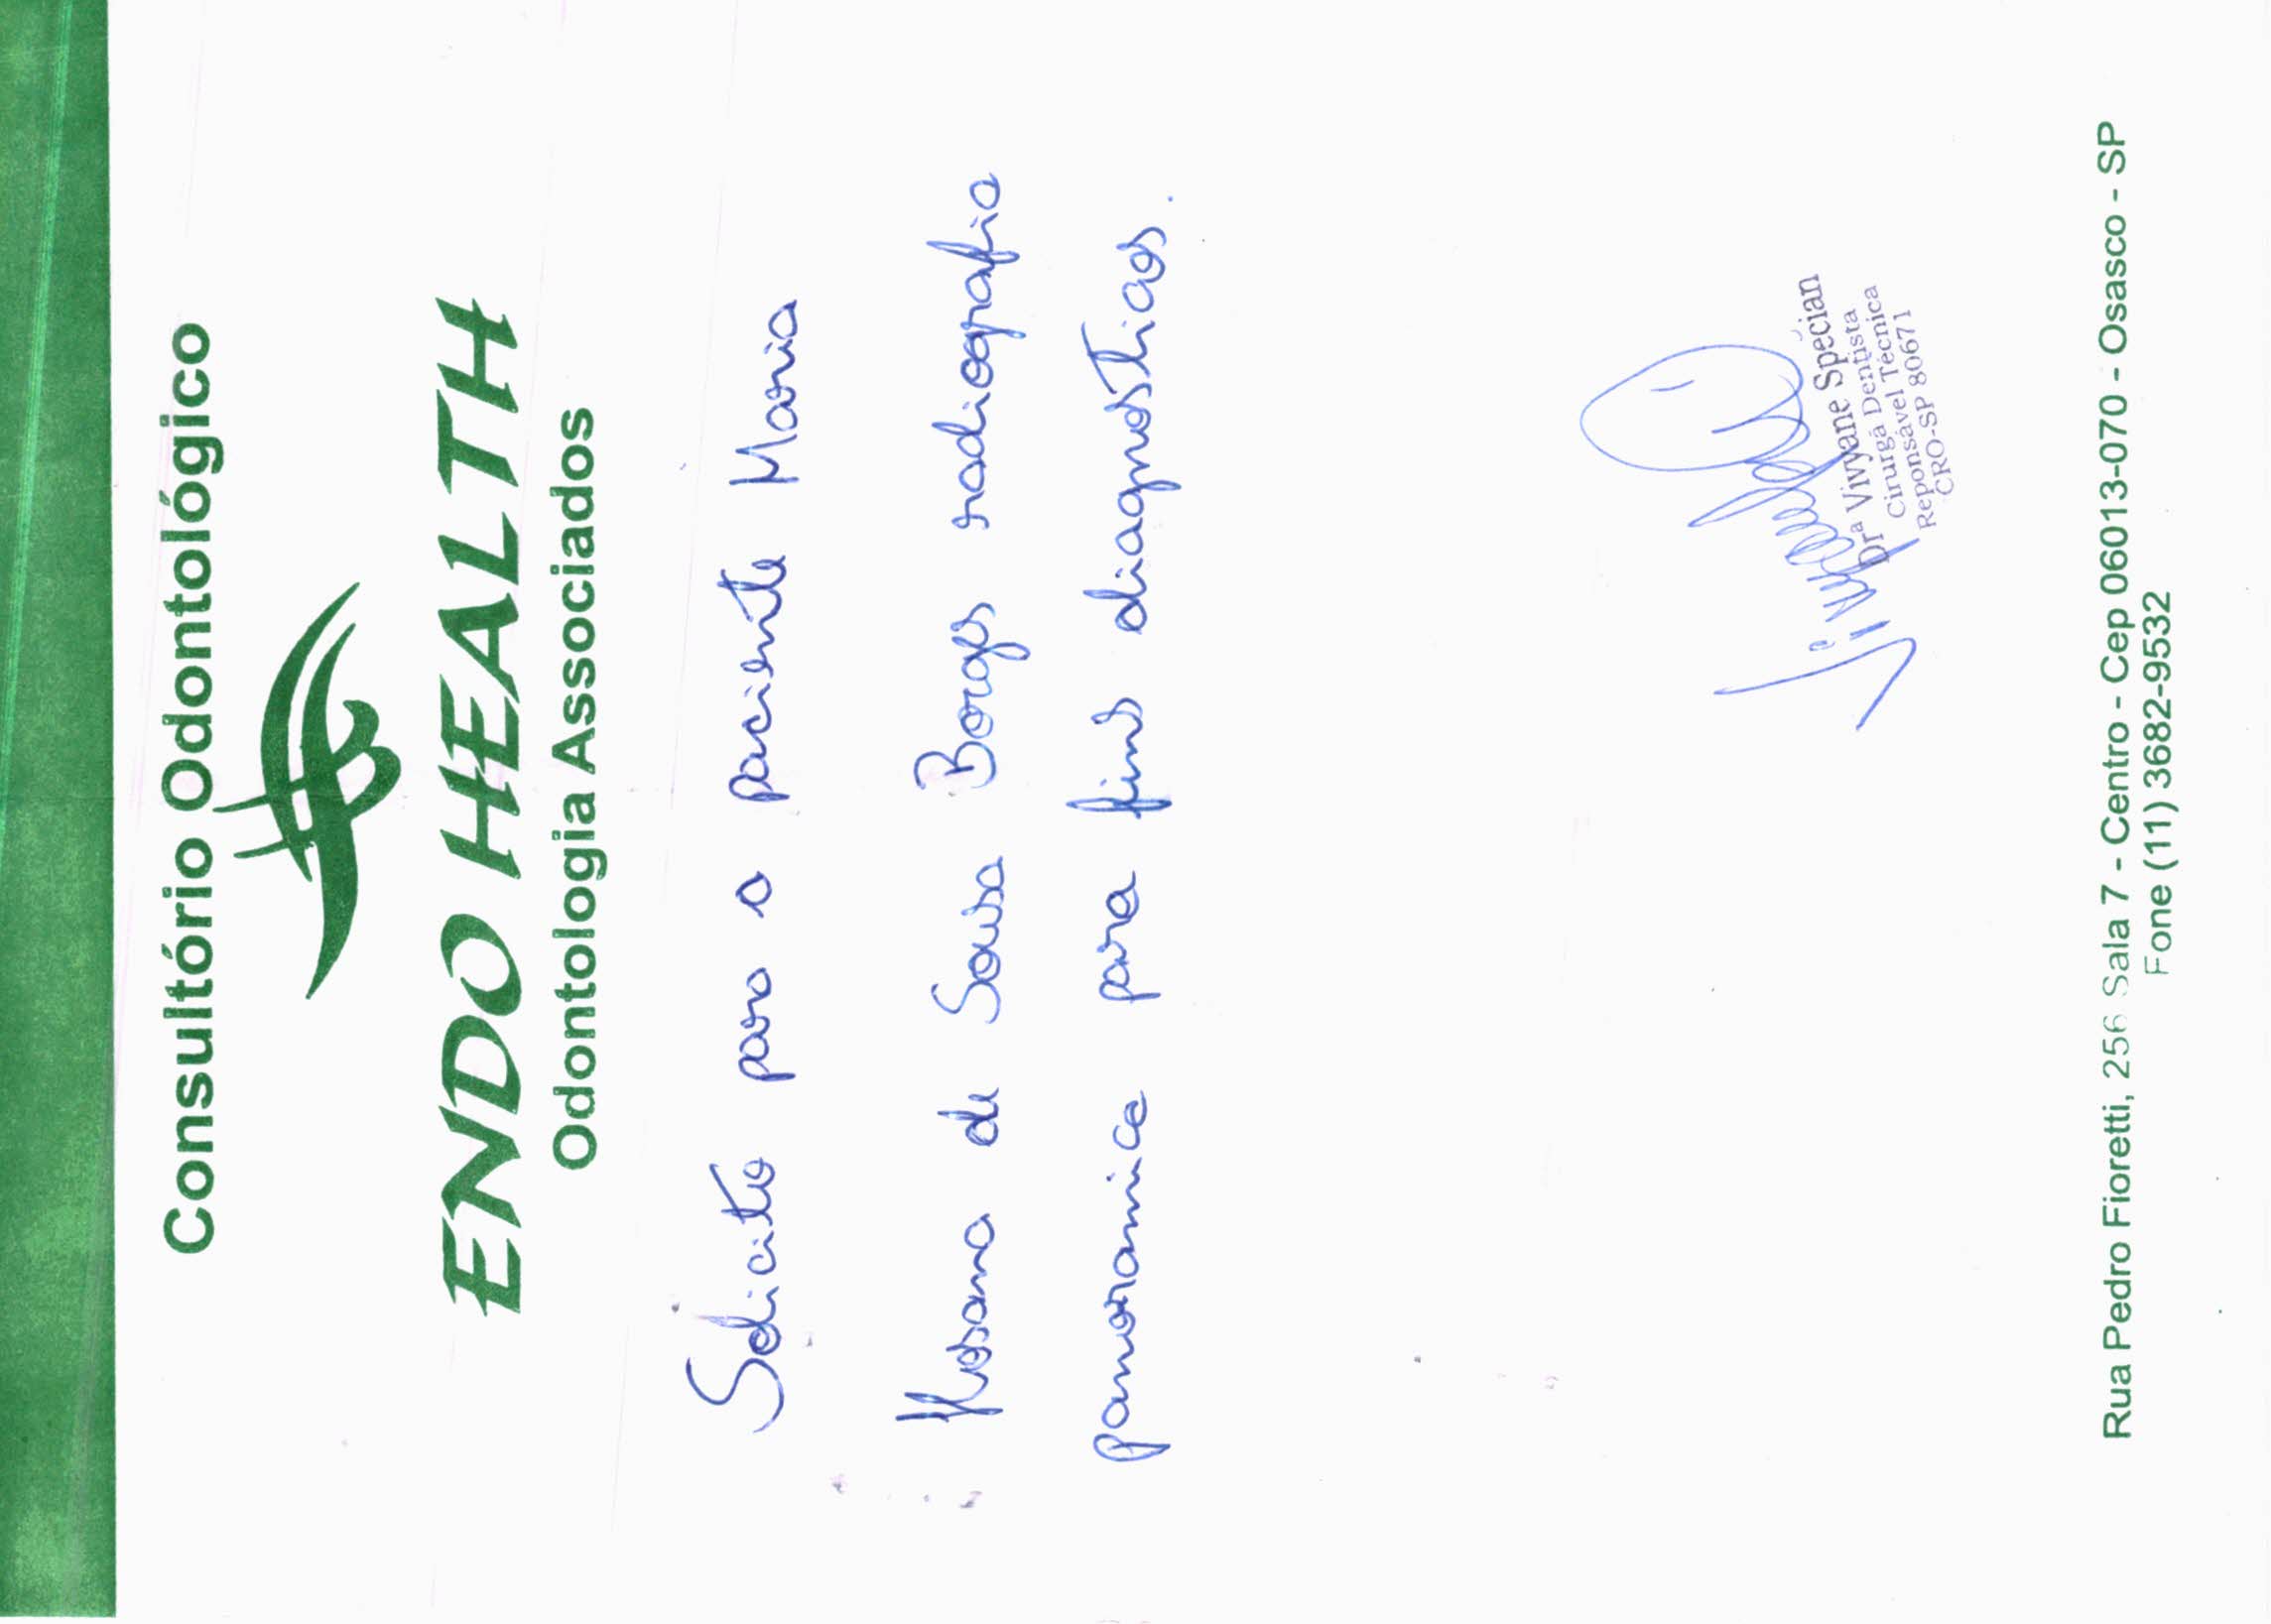 Consultório Odontológico
ENDO HEALTH
Odontologia Associados
Solicito para a paciente Maria
de Sousa Borges radiografia
panoramica para fins diagnosticos.
Dra Vivyane Specian
Cirurgã Dentista
Reponsável Técnica
CRO-SP 80671
Rua Pedro Fioretti, 256 Sala 7 - Centro - Cep 06013-070 - Osasco - SP
Fone (11) 3682-9532